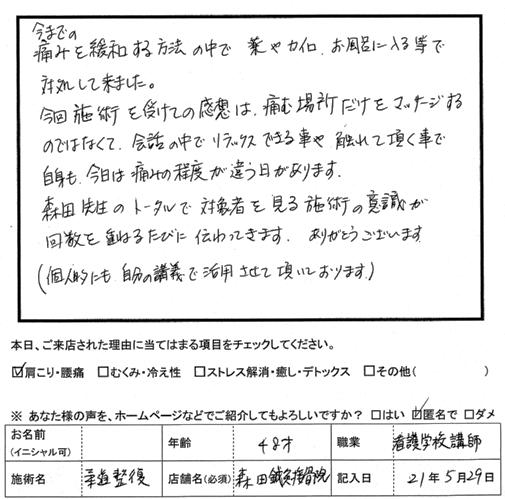 今までの
痛みを緩和する方法の中で 薬やカイロ、お風呂に入る等で
対処して来ました。
今回施術を受けての感想は、痛む場所だけをマッサージする
のではなくて、会話の中でリラックスできる事や触れて頂く事で
自身も、今日は痛みの程度が違う日があります。
森田先生のトータルで対象者を見る施術の意識が
回数を重ねるたびに伝わってきます。ありがとうございます
(個人的にも自分の講義で活用させて頂いております。)
本日、ご来店された理由に当てはまる項目をチェックしてください。
☑肩こり・腰痛 □むくみ・冷え性 □ストレス解消・癒し・デトックス □その他( )
※ あなた様の声を、ホームページなどでご紹介してもよろしいですか? □はい ☑匿名で □ダメ
お名前 (イニシャル可) 年齢 48才 職業 看護学校講師
施術名 整復 店舗名(必須) 森田鍼灸 院 記入日 21年5月29日